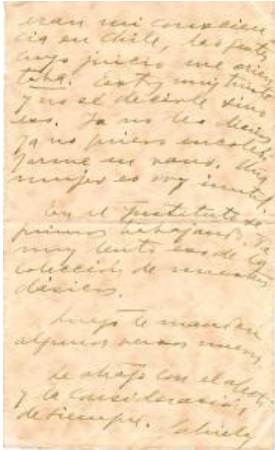 eran mi conscien
cia en Chile, las gentes
cuyo juicio me orien
taba. Estoy muy triste
y no sé decirle sino
eso. Ya no les digo,
ya no quiero encoleri
zarme en vano. Una
mujer es muy inútil.
En el Instituto se
primos trabajando. Va
muy lento eso de la
colección de nuestros
clásicos.
Luego te mandaré
algunos versos nuevos.
Le abraza con el afecto
y la consideración,
de siempre. Gabriela